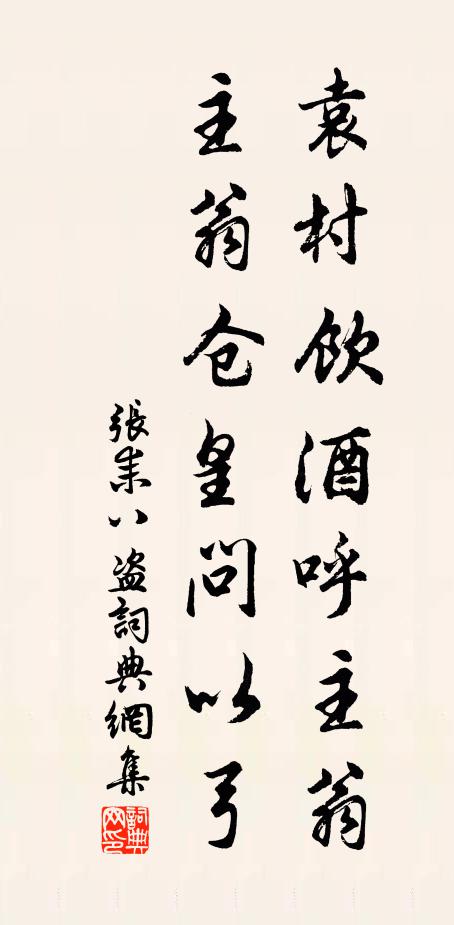 袁村飲酒呼主翁
主翁仓皇問以弓
張耒八盗詞典網集
詞典網印